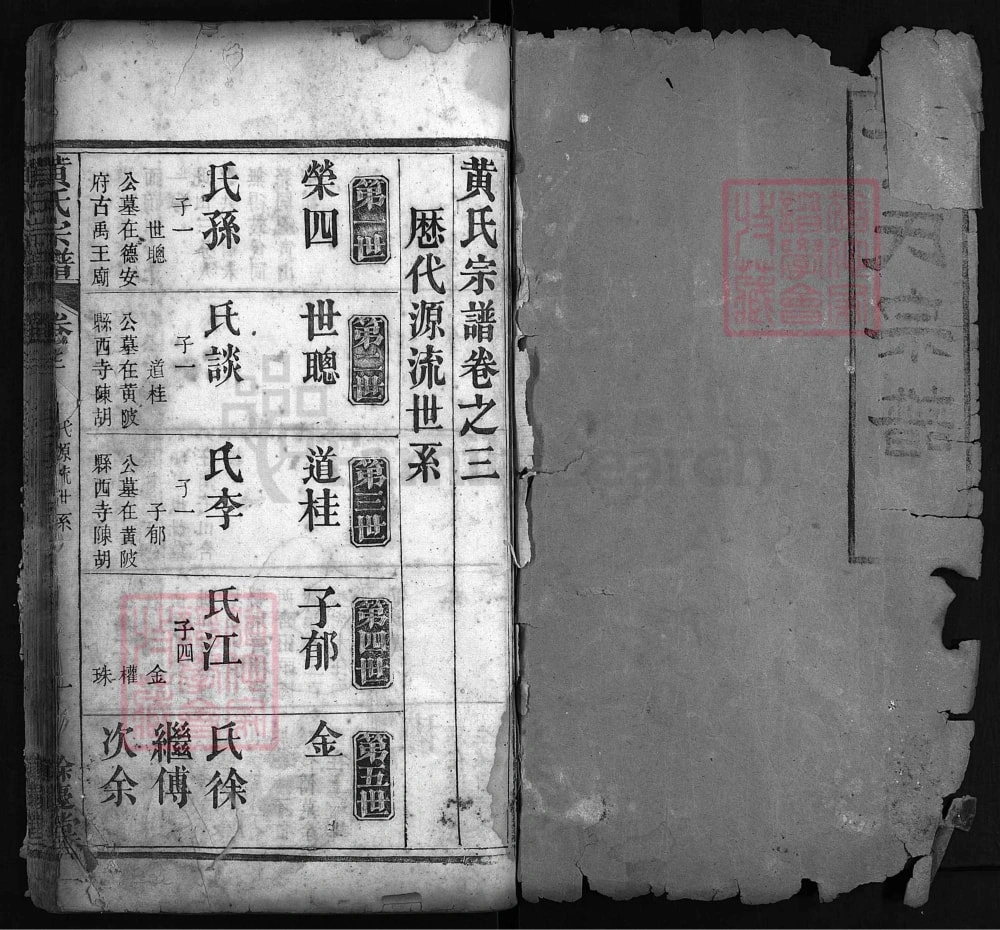 黄氏宗譜卷之三
歴代源流世系
第一世
榮四
氏孫
子一
世聰
公墓在德安
府古禹王廟
第二世
世聰
氏談
子一
道桂
公墓在黄陂
縣西寺陳胡
第三世
道桂
氏李
子郁
公墓在黄陂
縣西寺陳胡
第四世
子郁
氏江
子四
金
權
珠
第五世
金
氏徐
繼傅
次余
黄氏宗譜